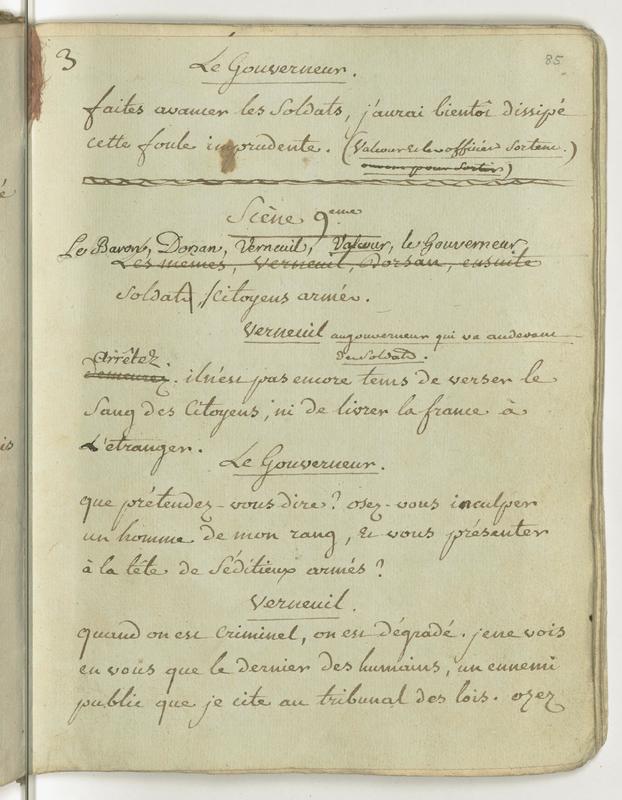 3
85
Le Gouverneur.
faites avancer les Soldats, j'aurai bientôt dissipé
cette foule imprudente. (Valcour et les officiers Sortent.)
pour Sortir)
Scène 9eme
Le Baron, Dorsan, Verneuil, Valcour, le Gouverneur,
Les mêmes, Verneuil, Dorsan, ensuite
Soldats, Citoyens armés.
Verneuil au gouverneur qui va audevant
des Soldats.
Arrêtez.
demeurez. il n'est pas encore tems de verser le
Sang des Citoyens, ni de livrer la france à
L'etranger.
Le Gouverneur.
que prétendez-vous dire? osez-vous inculper
un homme de mon rang, et vous présenter
à la tête de Séditieux armés?
Verneuil.
quand on est Criminel, on est dégradé. je ne vois
en vous que le dernier des humains, un ennemi
public que je cite au tribunal des lois. osez